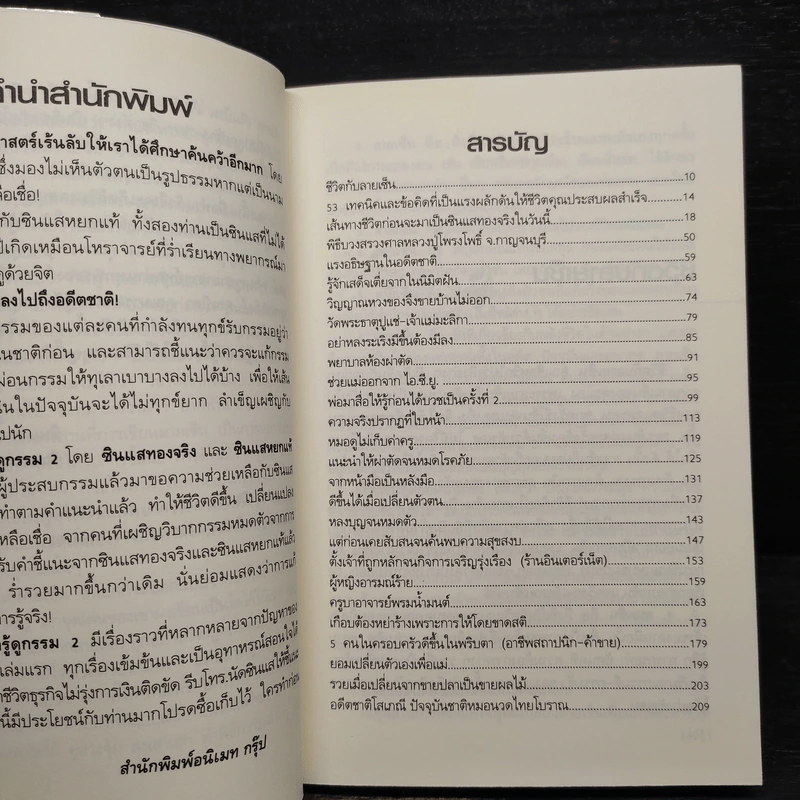 คำนำสำนักพิมพ์
าสตร์เร้นลับให้เราได้ศึกษาค้นคว้าอีกมาก โดย
ซึ่งมองไม่เห็นตัวตนเป็นรูปธรรมหากแต่เป็นนาม
ลือเชื่อ!
กับซินแสหยกแท้ ทั้งสองท่านเป็นซินแสที่ไม่ได้
ปีเกิดเหมือนโหราจารย์ที่ร่ำเรียนทางพยากรณ์มา
ดูด้วยจิต
ลงไปถึงอดีตชาติ!
กรรมของแต่ละคนที่กำลังทนทุกข์รับกรรมอยู่ว่า
นชาติก่อน และสามารถชี้แนะว่าควรจะแก้กรรม
ผ่อนกรรมให้ทุเลาเบาบางลงไปได้บ้าง เพื่อให้เส้น
นินในปัจจุบันจะได้ไม่ทุกข์ยาก ลำเข็ญเผชิญกับ
ปนัก
ดูกรรม 2 โดย ซินแสทองจริง และ ซินแสหยกแท้
ผู้ประสบกรรมแล้วมาขอความช่วยเหลือกับซินแส
ทำตามคำแนะนำแล้ว ทำให้ชีวิตดีขึ้น เปลี่ยนแปลง
หลือเชื่อ จากคนที่เผชิญวิบากกรรมหมดตัวจากการ
รับคำชี้แนะจากซินแสทองจริงและซินแสหยกแท้แล้ว
ร่ำรวยมากขึ้นกว่าเดิม นั่นย่อมแสดงว่าการแก้
การรู้จริง!
รู้ดูกรรม 2 มีเรื่องราวที่หลากหลายจากปัญหาของ
เล่มแรก ทุกเรื่องเข้มข้นและเป็นอุทาหรณ์สอนใจได้
าชีวิตธุรกิจไม่รุ่งการเงินติดขัด รีบโทร.นัดซินแสให้ชี้แนะ
นี้มีประโยชน์กับท่านมากโปรดซื้อเก็บไว้ ใครทำก่อน
สำนักพิมพ์อนิเมท กรุ๊ป
สารบัญ
ชีวิตกับลายเซ็น 10
53 เทคนิคและข้อคิดที่เป็นแรงผลักดันให้ชีวิตคุณประสบผลสำเร็จ 14
เส้นทางชีวิตก่อนจะมาเป็นซินแสทองจริงในวันนี้ 18
พิธีบวงสรวงศาลหลวงปู่โพรงโพธิ์ จ.กาญจนบุรี 50
แรงอธิษฐานในอดีตชาติ 59
รู้จักเสด็จเตี่ยจากในนิมิตฝัน 63
วิญญาณหวงของจึงขายบ้านไม่ออก 74
วัดพระธาตุปูแช่-เจ้าแม่มะลิกา 79
อย่าหลงระเริงมีขึ้นต้องมีลง 85
พยาบาลห้องผ่าตัด 91
ช่วยแม่ออกจาก ไอ.ซี.ยู. 95
พ่อมาสื่อให้รู้ก่อนได้บวชเป็นครั้งที่ 2 99
ความจริงปรากฏที่ใบหน้า 113
หมอดูไม่เก็บค่าครู 119
แนะนำให้ผ่าตัดจนหมดโรคภัย 125
จากหน้ามือเป็นหลังมือ 131
ดีขึ้นได้เมื่อเปลี่ยนตัวตน 137
หลงบุญจนหมดตัว 143
แต่ก่อนเคยสับสนจนค้นพบความสุขสงบ 147
ตั้งเจ้าที่ถูกหลักจนกิจการเจริญรุ่งเรือง (ร้านอินเตอร์เน็ต) 153
ผู้หญิงอารมณ์ร้าย 159
ครูบาอาจารย์พรมน้ำมนต์ 163
เกือบต้องหย่าร้างเพราะการให้โดยขาดสติ 173
5 คนในครอบครัวดีขึ้นในพริบตา (อาชีพสถาปนิก-ค้าขาย) 179
ยอมเปลี่ยนตัวเองเพื่อแม่ 199
รวยเมื่อเปลี่ยนจากขายปลาเป็นขายผลไม้ 203
อดีตชาติโสเภณี ปัจจุบันชาติหมอนวดไทยโบราณ 209